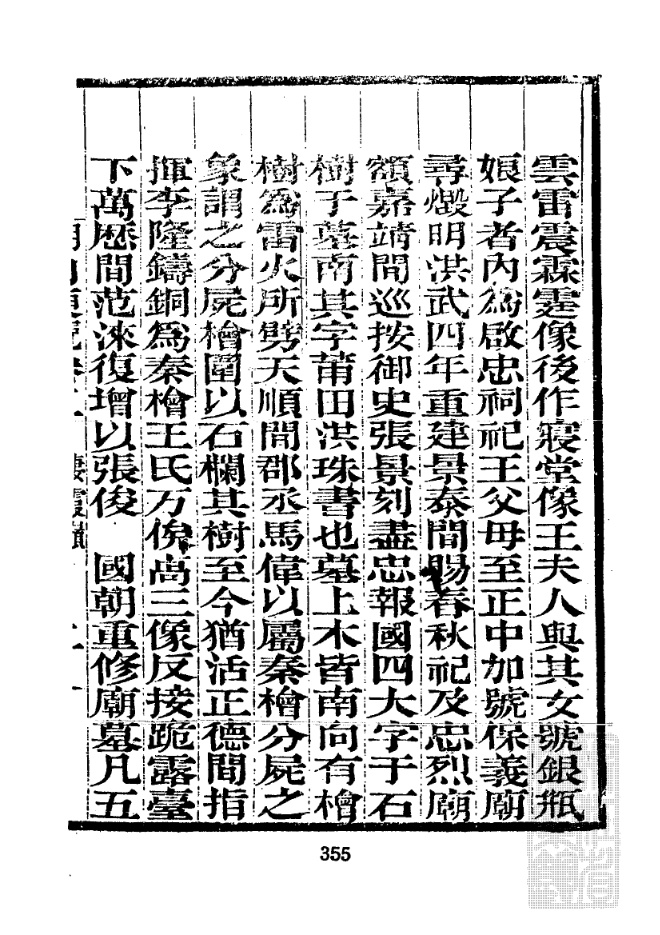 雲雷震霖霆像後作寢堂像王夫人與其女號銀瓶
娘子者內為啟忠祠祀王父母至正中加號保義廟
尋燬明洪武四年重建景泰間賜春秋祀及忠烈廟
額嘉靖間巡按御史張景刻盡忠報國四大字于石
樹于墓南其字莆田洪珠書也墓上木皆南向有檜
樹為雷火所劈天順間郡丞馬偉以屬秦檜分屍之
象謂之分屍檜圍以石欄其樹至今猶活正德間指
揮李隆鑄銅爲秦檜王氏万俟卨三像反接跪露臺
下萬歷間范淶復增以張俊　國朝重修廟墓凡五
棲霞嶺
355